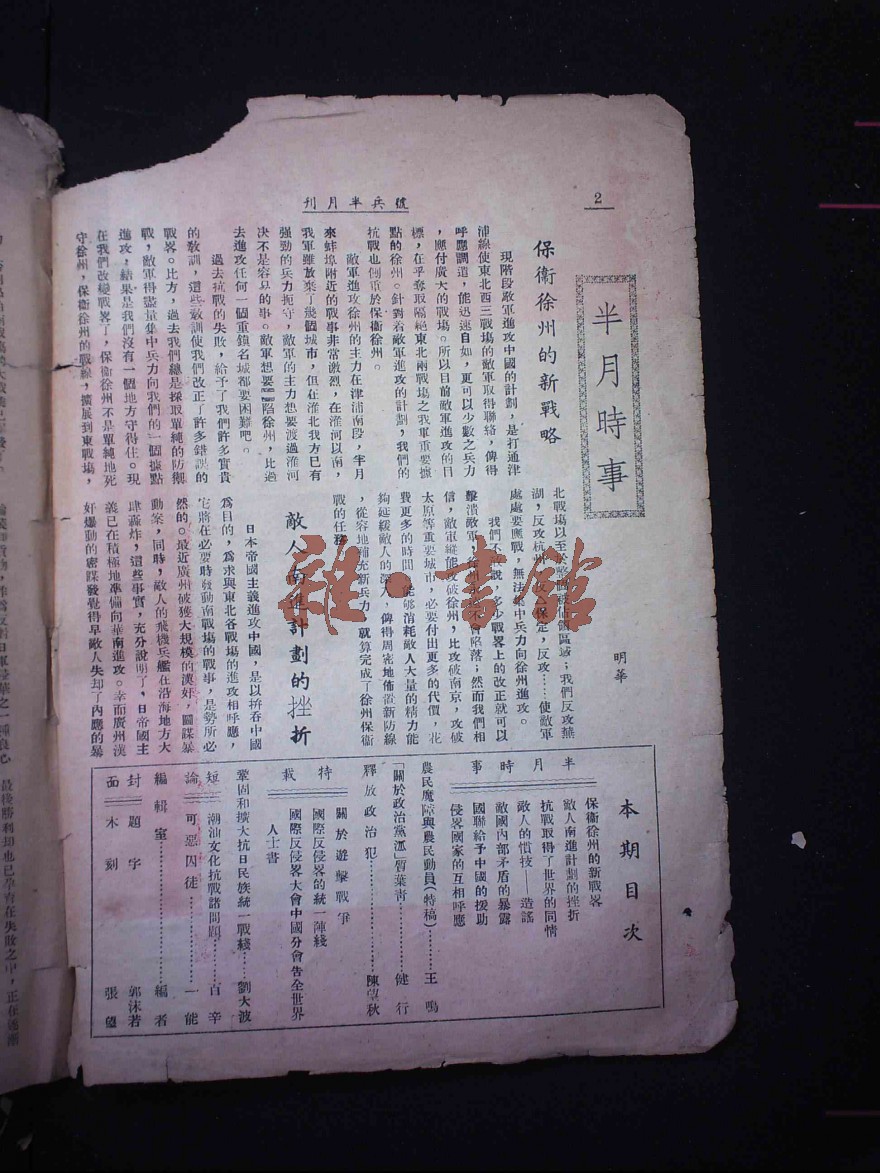 2
號兵半月刊
半月時事
明華
保衛徐州的新戰略
現階段敵軍進攻中國的計劃,是打通津
浦線使東北西三戰場的敵軍取得聯絡,俾得
呼應調遣,能迅速自如,更可以少數之兵力
,應付廣大的戰場。所以目前敵軍進攻的目
標,在乎奪取隔絕東北兩戰場之我軍重要據
點的徐州。針對着敵軍進攻的計劃,我們的
抗戰也側重於保衛徐州。
敵軍進攻徐州的主力在津浦南段,半月
來蚌埠附近的戰事非常激烈,在淮河以南,
我軍雖放棄了幾個城市,但在淮北我方已有
強勁的兵力扼守,敵軍的主力想要渡過淮河
決不是容易的事。敵軍想要陷徐州,比過
去進攻任何一個重鎮名城都要困難吧。
過去抗戰的失敗,給予了我們許多寶貴
的敎訓,這些敎訓使我們改正了許多錯誤的
戰畧。比方,過去我們總是採取單純的防禦
戰,敵軍得盡量集中兵力向我們的一個據點
進攻,結果是我們沒有一個地方守得住。現
在我們改變戰畧了,保衛徐州不是單純地死
守徐州,保衛徐州的戰線,擴展到東戰場,
北戰場以至於整個被佔領區域;我們反攻蕪
湖,反攻杭州,反攻保定,反攻……使敵軍
處處要應戰,無法集中兵力向徐州進攻。
我們不能說,多少戰畧上的改正就可以
擊潰敵軍,徐州永遠不會陷落;然而我們相
信,敵軍縱能攻破徐州,比攻破南京,攻破
太原等重要城市,必要付出更多的代價,花
費更多的時間,能够消耗敵人大量的精力能
够延緩敵人的深入,俾得周密地佈置新防線
,從容地補充新兵力,就算完成了徐州保衛
戰的任務。
敵人南進計劃的挫折
日本帝國主義進攻中國,是以拚吞中國
爲目的,爲求與東北各戰場的進攻相呼應,
它將在必要時發動南戰場的戰事,是勢所必
然的。最近廣州破獲大規模的漢奸,圖謀暴
動案,同時,敵人的飛機兵艦在沿海地方大
肆轟炸,這些事實,充分說明了,日帝國主
義已在積極地準備向華南進攻。幸而廣州漢
奸爆動的密謀發覺得早敵人失却了內應的暴
本期目次
半月時事
保衛徐州的新戰畧
敵人南進計劃的挫折
抗戰取得了世界的同情
敵人的慣技——造謠
敵國內部矛盾的暴露
國聯給予中國的援助
侵畧國家的互相呼應
農民魔障與農民動員(特稿)……王鳴
「關於政治黨派」質葉青……健行
釋放政治犯……陳望秋
特載
關於遊擊戰爭
國際反侵畧的統一陣綫
國際反侵畧大會中國分會告全世界
人士書
鞏固和擴大抗日民族統一戰綫……劉大波
短論
潮汕文化抗戰諸問題……百辛
可惡囚徒……一能
編輯室……編者
封面
題字 郭沫若
木刻 張望
雜·書館